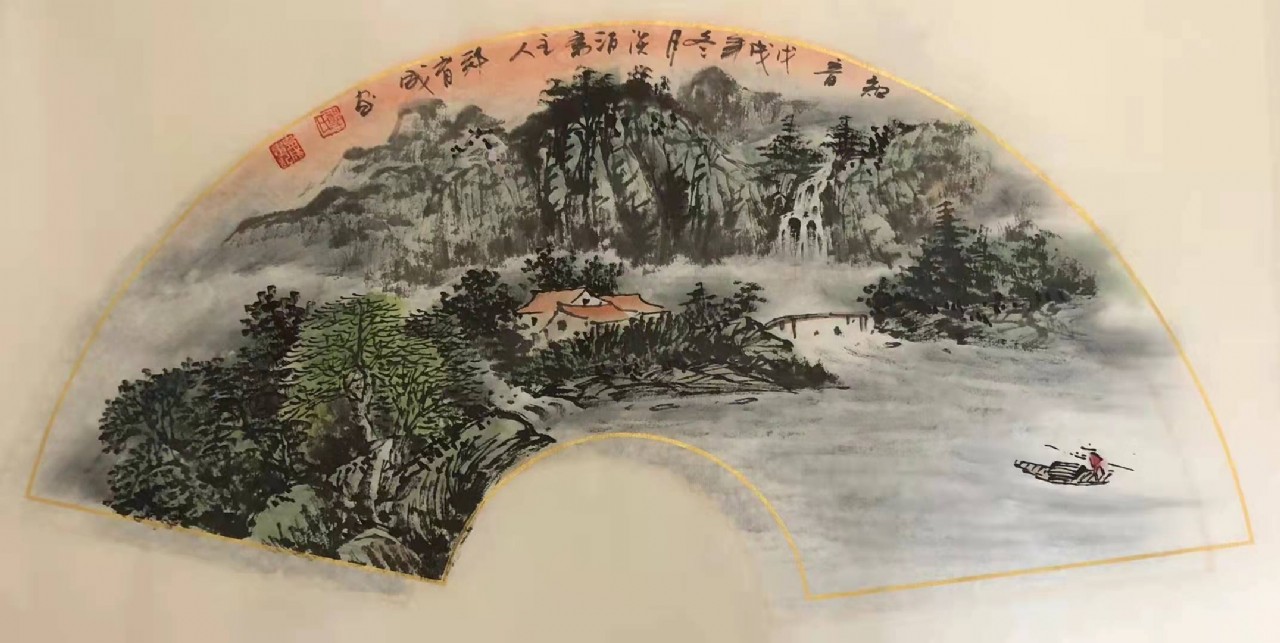 知音 戊戌年冬月 淡泊斋主人 郑有成 画